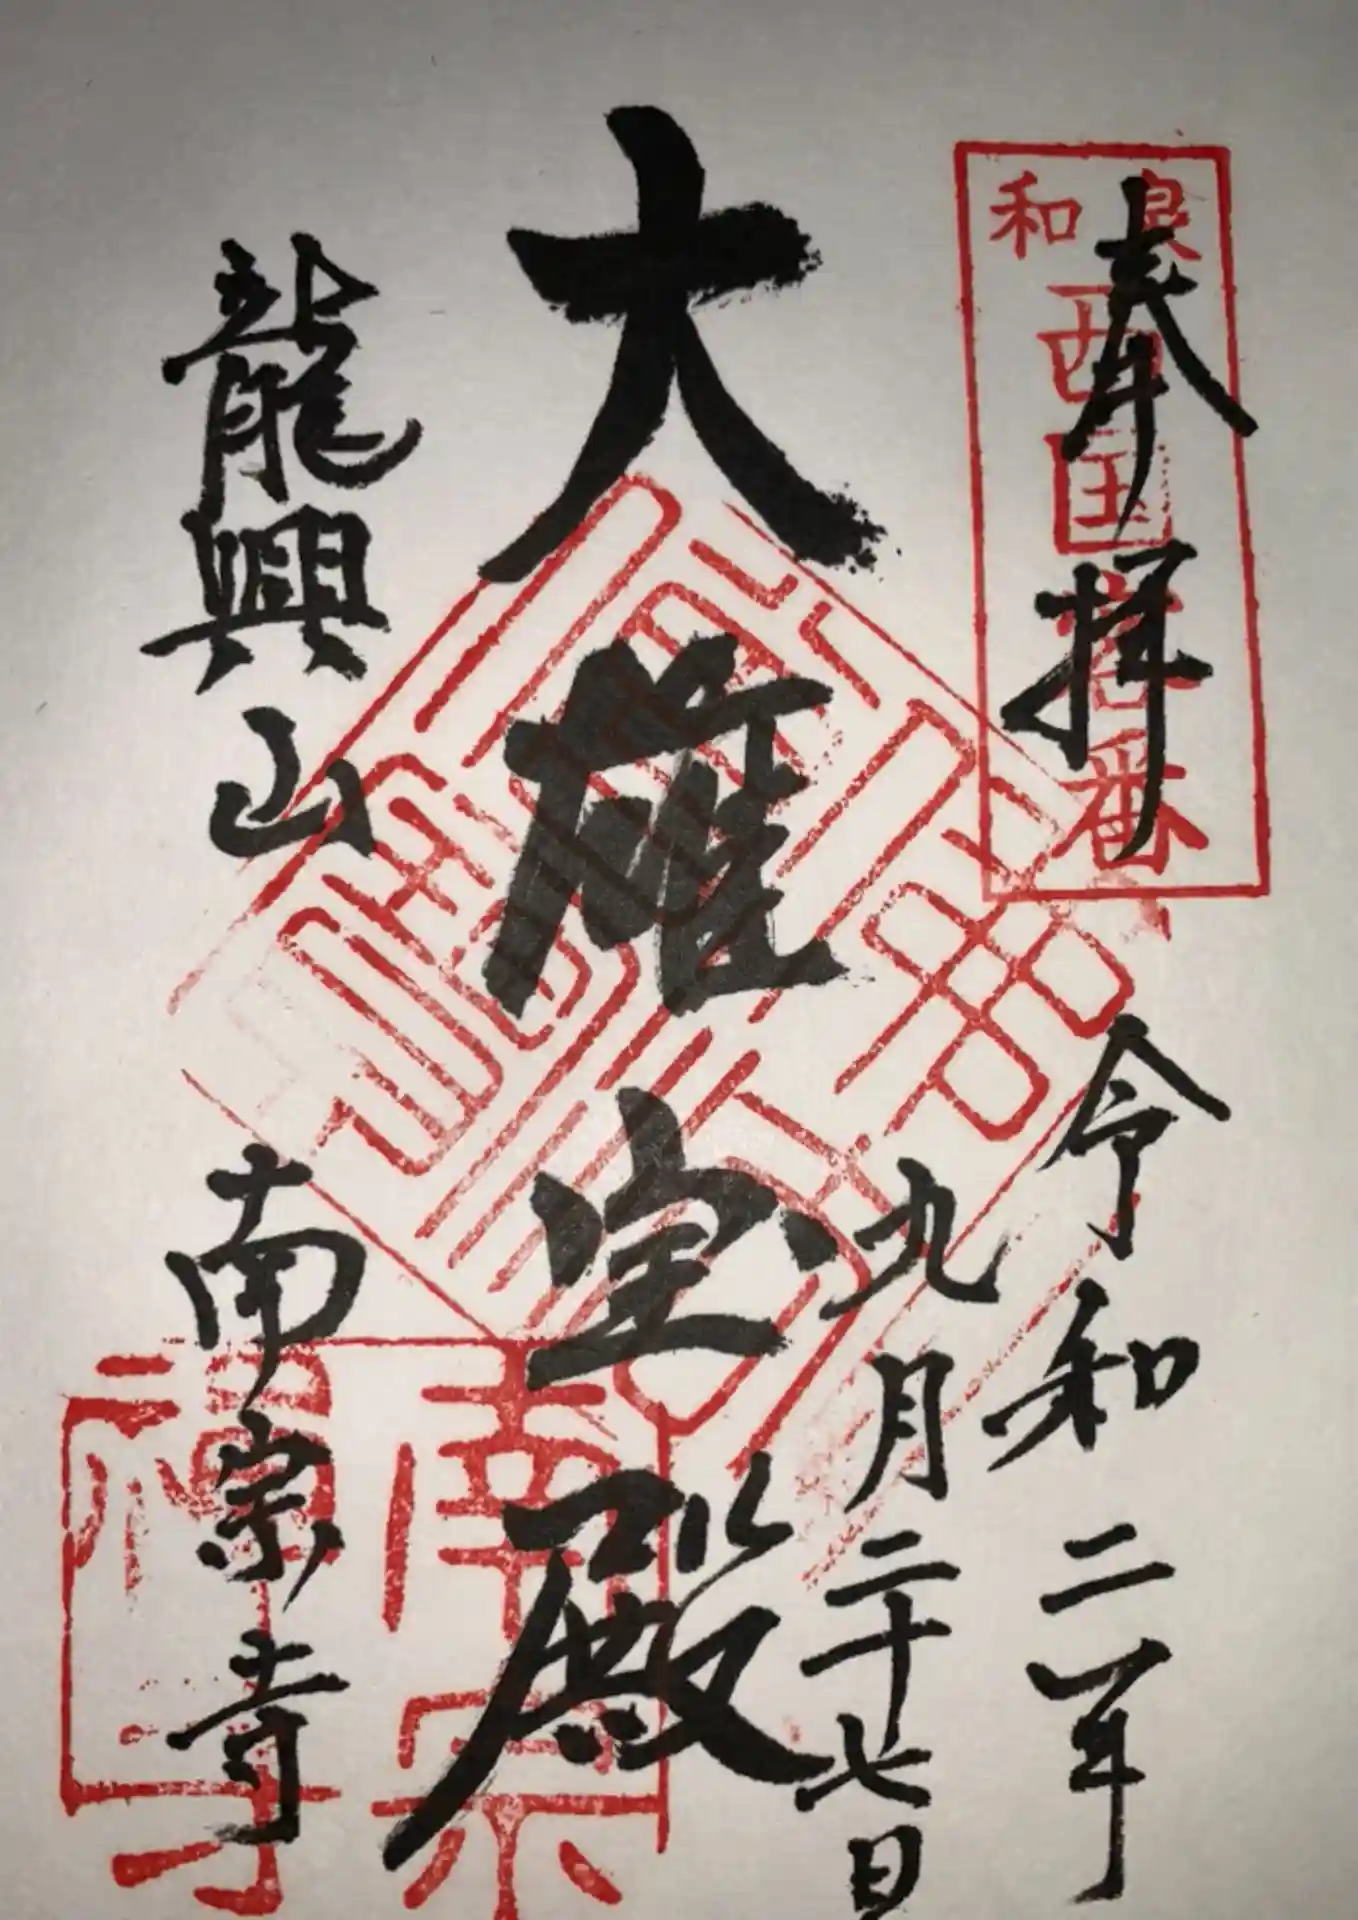 和泉
西国客番
奉拝
令和二年
九月二十七日
大雄宝殿
龍興山
南宗寺
南宗
禅寺